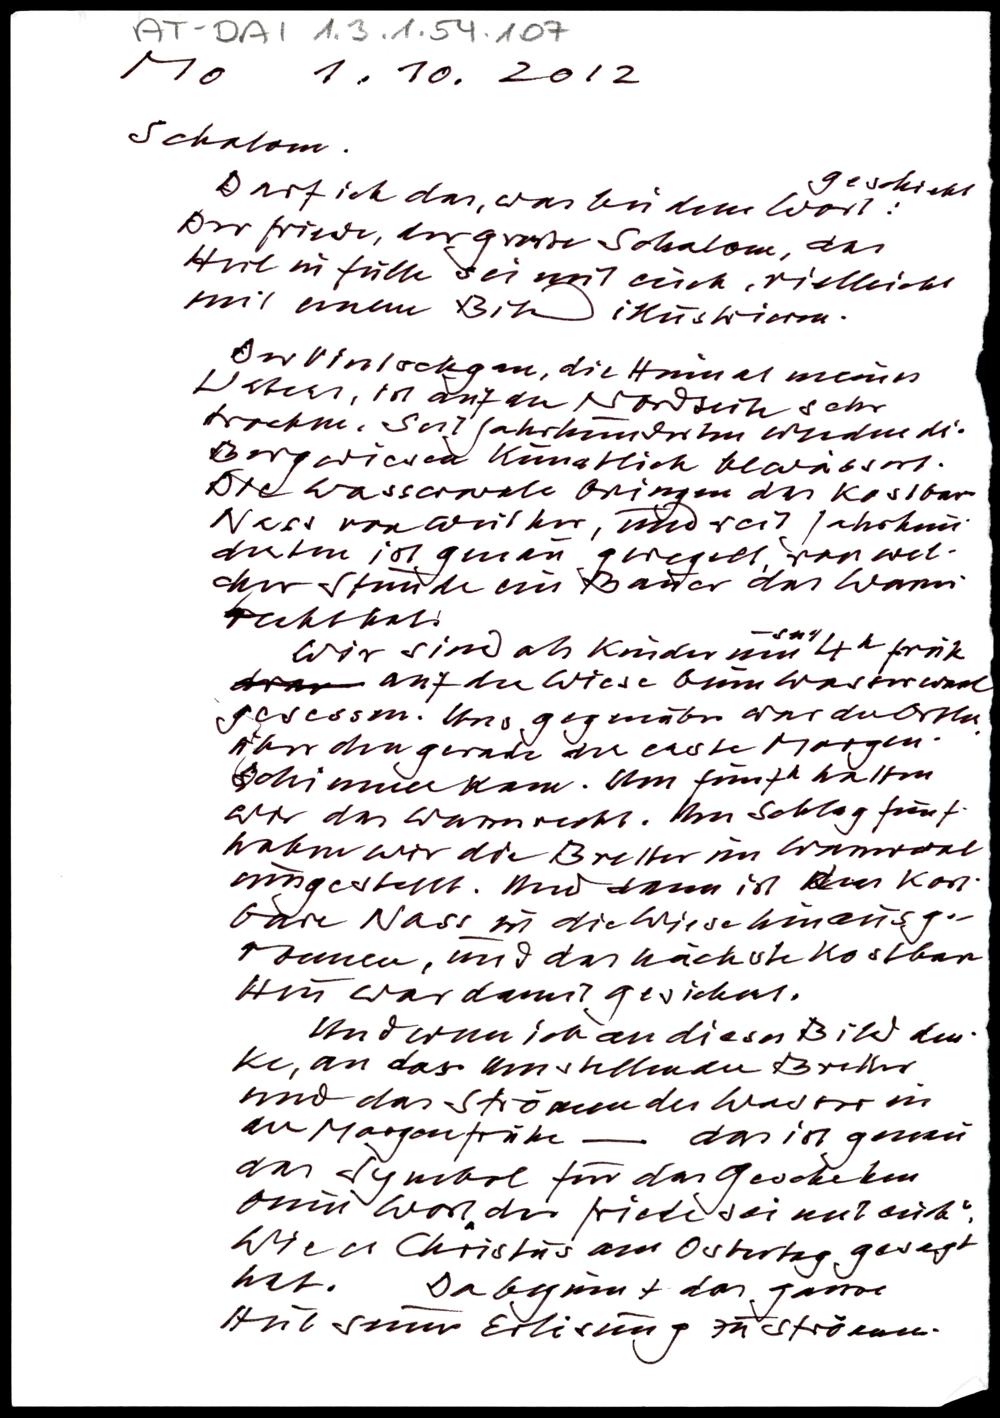 AT-DAI 1.3.1.54.107
Mo 1. 10. 2012
Schalom.
Darf ich das, was bei dem Wort: geschieht
Der Friede, der große Schalom, das
Heil in Fülle sei mit euch, vielleicht
mit einem Bild illustrieren.
Der Vinschgau, die Heimat meines
Vaters, ist auf der Nordseite sehr
trocken. Seit Jahrhunderten werden die
Bergwiesen künstlich bewässert.
Die Wasserwale bringen das kostbare
Nass von weit her, und seit Jahrhun-
derten ist genau geregelt, von wel-
cher Stunde ein Bauer das Wasser-
recht hat.
Wir sind als Kinder um 4h früh
auf der Wiese beim Wasserwaal
gesessen. Uns gegenüber war der Ortler,
über den gerade der erste Morgen-
schimmer kam. Um fünf h hatten
wir das Wasserrecht. Um Schlag fünf
haben wir die Bretter im Wasserwal
umgestellt. Und dann ist das kost-
bare Nass in die Wiese hinausge-
ronnen, und das nächste kostbare
Heu war damit gesichert.
Und wenn ich an dieses Bild den-
ke, an das Umstellen der Bretter
und das Strömen des Wassers in
der Morgenfrühe — das ist genau
das Symbol für das Geschehen
beim Wort "der Friede sei mit euch".
Wie er Christus am Ostertag gesagt
hat. Da beginnt das ganze
Heil seiner Erlösung zu strömen.